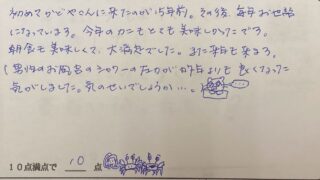 初めてかどやさんに来たのが15年前。その後、毎年お世話
になっています。今年のカニもとても美味しかったです。
朝食も美味しくて、大満足でした。また来年も来ます。
(男性のお風呂のシャワーの圧力が昨年よりも良くなった
気がしました。気のせいでしょうか…。)
10点満点で 10 点